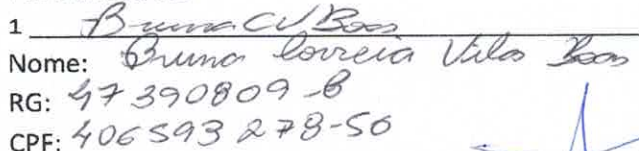 1 Bruna CV Boas
Nome: Bruna Correia Vilas Boas
RG: 47390809-8
CPF: 406593278-50